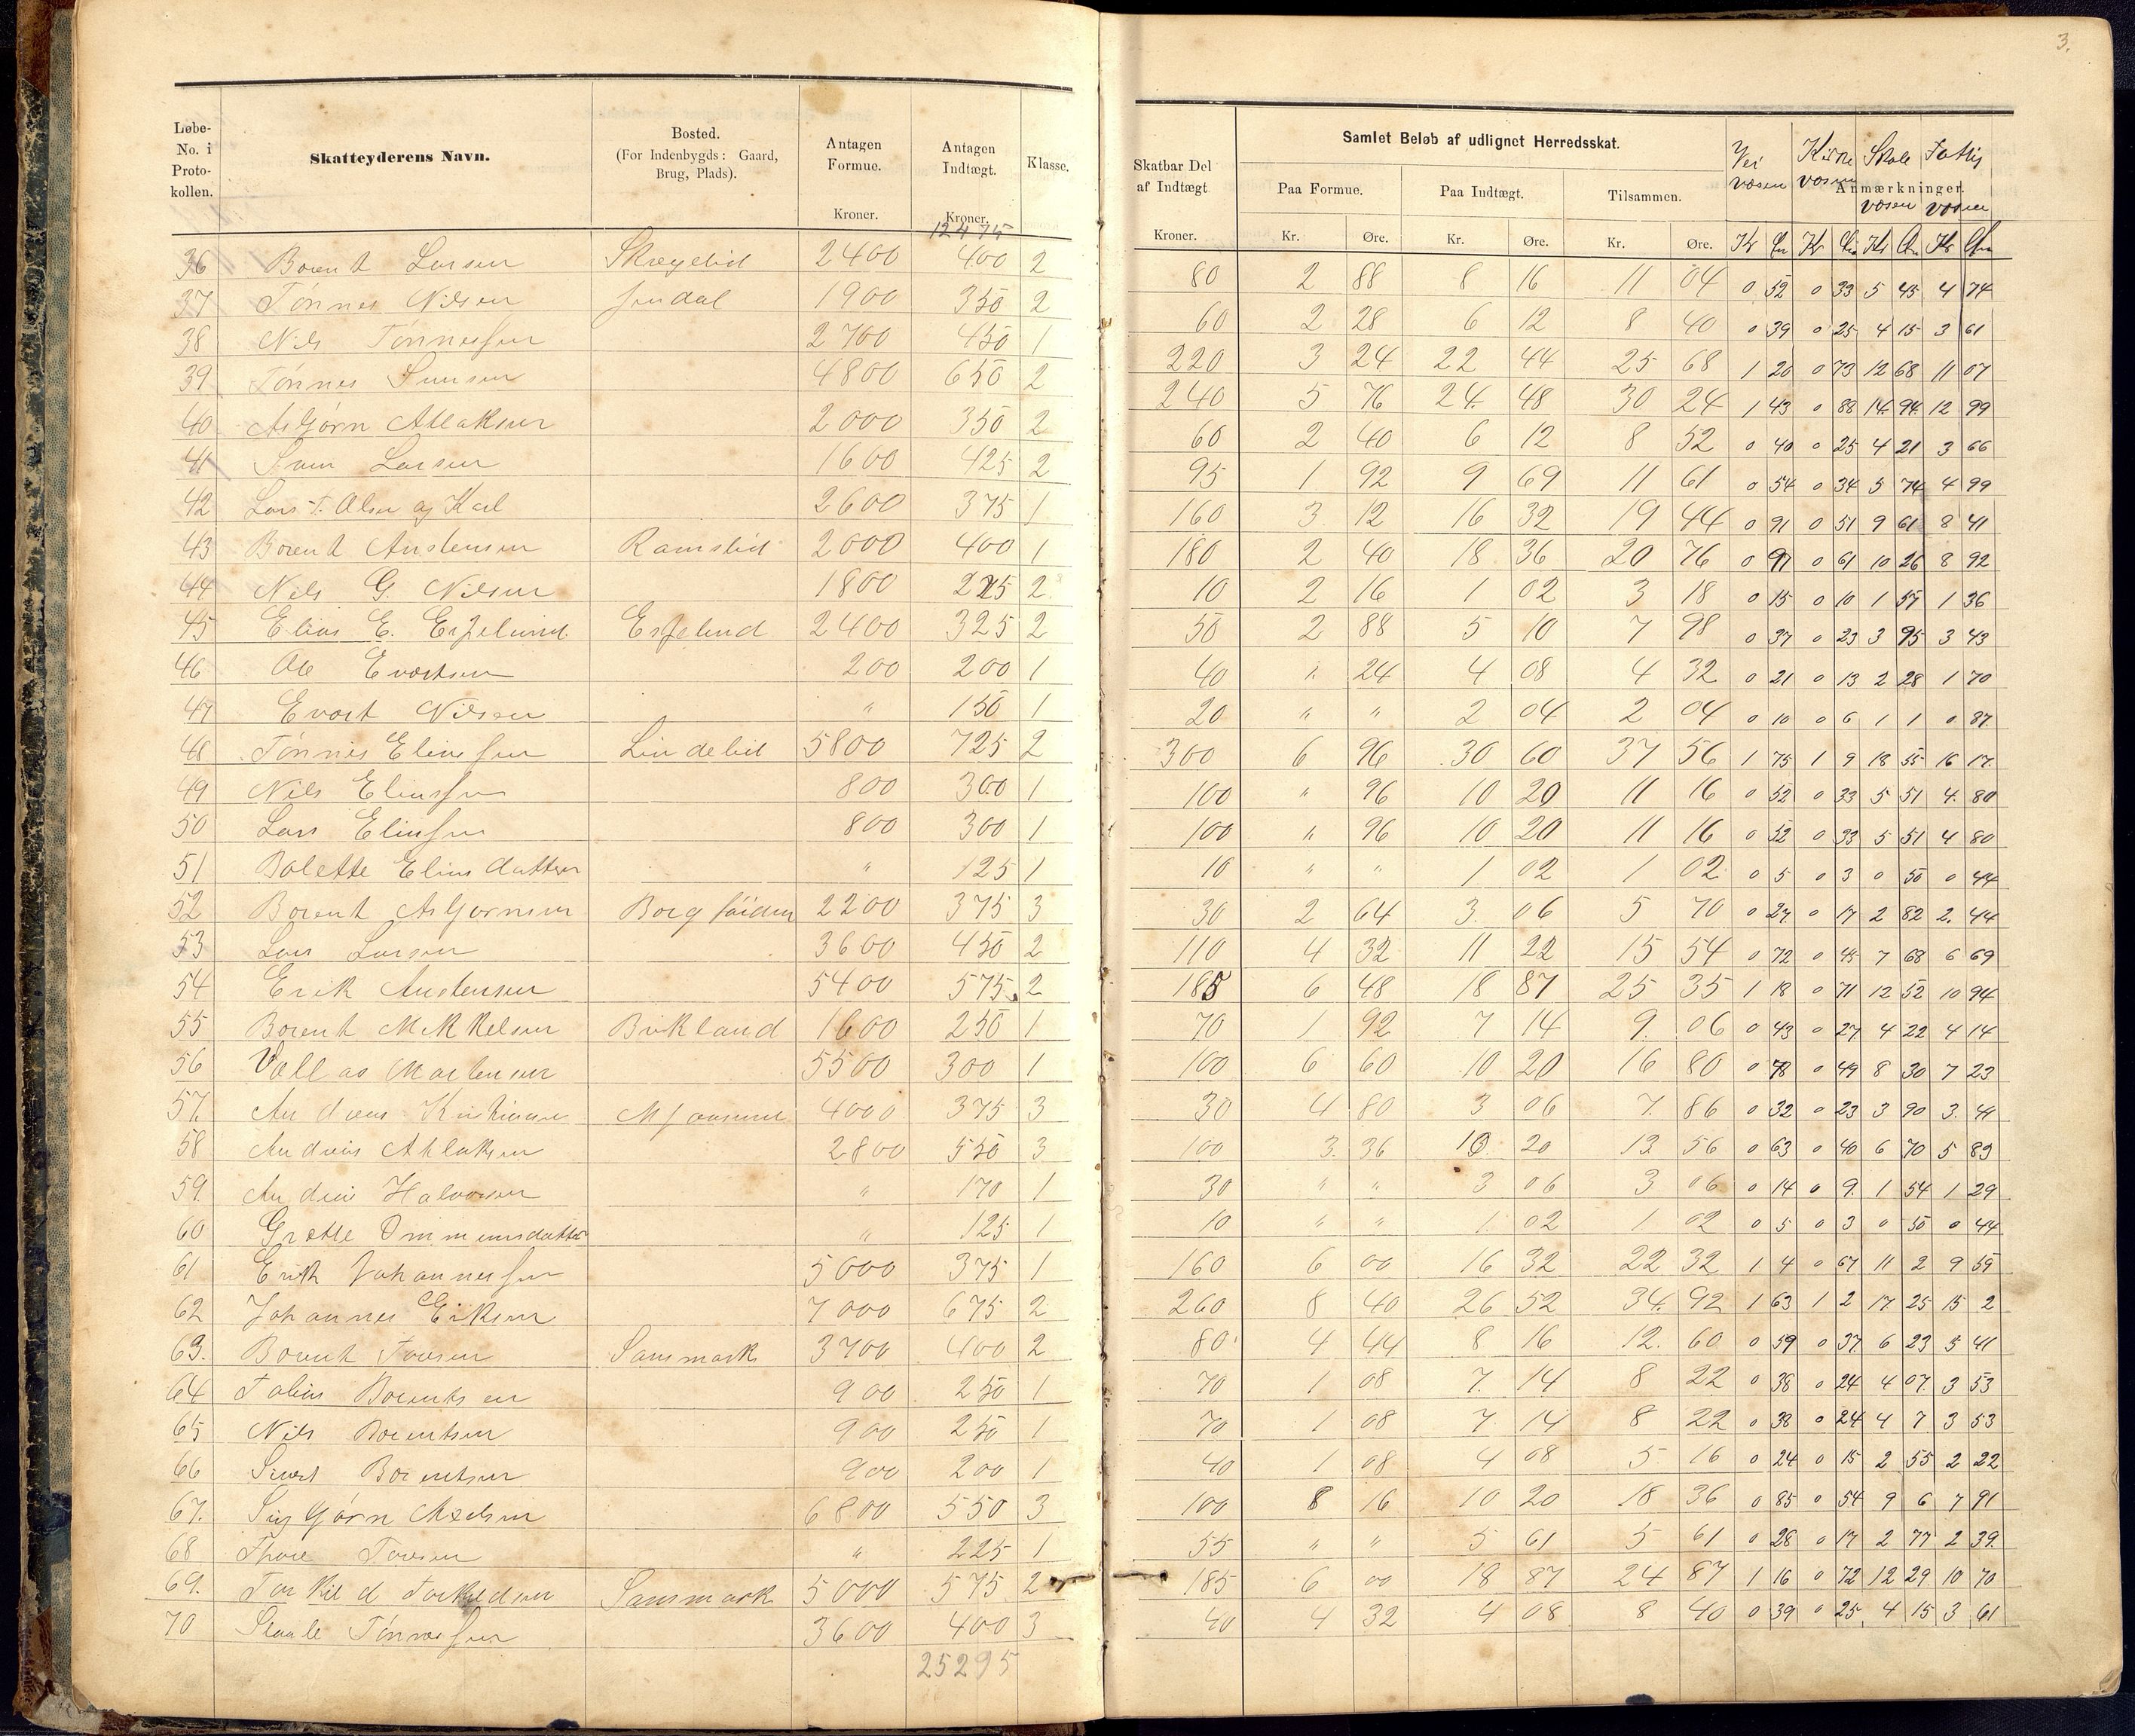 3.
Løbe-No. i Proto-kollen. | Skatteyderens Navn. | Bosted. (For Indenbygds: Gaard, Brug, Plads). | Antagen Formue. Kroner. | Antagen Indtægt. Kroner. | Klasse. | Skatbar Del af Indtægt Kroner. | Samlet Beløb af udlignet Herredsskat. Paa Formue. Kr. Øre. | Paa Indtægt. Kr. Øre. | Tilsammen. Kr. Øre. | Anmærkninger. Vei væsen Kr | Kirke væsen Kr | Skole væsen Kr | Fattig væsen Kr
12475
36 Borent Larsen 2400 400 2 80 2 88 8 16 11 04 0 52 0 33 5 45 4 74
37 Tønnes Nilsen 1900 350 2 60 2 28 6 12 8 40 0 39 0 25 4 15 3 61
38 Nils Tønnessen 2700 450 1 220 3 24 22 44 25 68 1 20 0 73 12 68 11 07
39 Tønnes 4800 650 2 240 5 76 24 48 30 24 1 43 0 88 14 94 12 99
40 Asbjørn Atlaksen 2000 350 2 60 2 40 6 12 8 52 0 40 0 25 4 21 3 66
41 Larsen 1600 425 2 95 1 92 9 69 11 61 0 54 0 34 5 74 4 99
42 Lars T. Olsen og Karl 2600 375 1 160 3 12 16 32 19 44 0 91 0 51 9 61 8 41
43 Borent Austensen Ramslid 2000 400 1 180 2 40 18 36 20 76 0 97 0 61 10 26 8 92
44 Nils G. Nilsen 1800 225 2 10 2 16 1 02 3 18 0 15 0 10 1 57 1 36
45 Elias E. 2400 325 2 50 2 88 5 10 7 98 0 37 0 23 3 95 3 43
46 Ole Evertsen 200 200 1 40 " 24 4 08 4 32 0 21 0 13 2 28 1 70
47 Evert Nilsen " 150 1 20 " " 2 04 2 04 0 10 0 6 1 1 0 87
48 Tønnes Eliassen Lindelid 5800 725 2 300 6 96 30 60 37 56 1 75 1 9 18 55 16 17
49 Nils Eliassen 800 300 1 100 " 96 10 20 11 16 0 52 0 33 5 51 4 80
50 Lars Eliassen 800 300 1 100 " 96 10 20 11 16 0 52 0 33 5 51 4 80
51 Bolette Eliasdatter " 125 1 10 " " 1 02 1 02 0 5 0 3 0 50 0 44
52 Borent Asbjørnsen 2200 375 3 30 2 64 3 06 5 70 0 27 0 17 2 82 2 44
53 Lars Larsen 3600 450 2 110 4 32 11 22 15 54 0 72 0 45 7 68 6 69
54 Erik Austensen 5400 575 2 185 6 48 18 87 25 35 1 18 0 71 12 52 10 94
55 Borent Mikkelsen Birkland 1600 250 1 70 1 92 7 14 9 06 0 43 0 27 4 22 4 14
56 Martensen 5500 300 1 100 6 60 10 20 16 80 0 78 0 49 8 30 7 23
57 Andreas Kristiansen 4000 375 3 30 4 80 3 06 7 86 0 32 0 23 3 90 3 41
58 Andreas Atlaksen 2800 550 3 100 3 36 10 20 13 56 0 63 0 40 6 70 5 83
59 Andreas Halvorsen " 170 1 30 " " 3 06 3 06 0 14 0 9 1 54 1 29
60 Grethe Ommunsdatter " 125 1 10 " " 1 02 1 02 0 5 0 3 0 50 0 44
61 Erik Johannessen 5000 375 1 160 6 00 16 32 22 32 1 4 0 67 11 2 9 59
62 Johannes Eriksen 7000 675 2 260 8 40 26 52 34 92 1 63 1 2 17 25 15 2
63 Borent Toresen Sansmark 3700 400 2 80 4 44 8 16 12 60 0 59 0 37 6 23 5 41
64 Tobias Borentsen 900 250 1 70 1 08 7 14 8 22 0 38 0 24 4 07 3 53
65 Nils Borentsen 900 250 1 70 1 08 7 14 8 22 0 38 0 24 4 7 3 53
66 Sivert Borentsen 900 200 1 40 1 08 4 08 5 16 0 24 0 15 2 55 2 22
67 Sigbjørn Axelsen 6800 550 3 100 8 16 10 20 18 36 0 85 0 54 9 6 7 91
68 Thore Toresen " 225 1 55 " " 5 61 5 61 0 28 0 17 2 77 2 39
69 Torkild Torkildsen Sansmark 5000 575 2 185 6 00 18 87 24 87 1 16 0 72 12 29 10 70
70 Staale Tønnessen 3600 400 3 40 4 32 4 08 8 40 0 39 0 25 4 15 3 61
25295